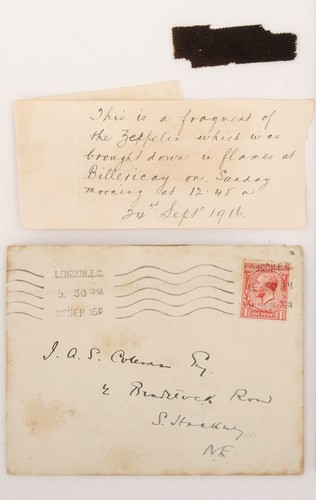 This is a fragment of
the Zeppelin which was
brought down in flames at
Billericay on Sunday
morning at 12.45 on
24th Septr 1916.
LONDON.E.C.
5. 30 PM
SEP 16
J. A. S. Coleman Esq.
Row
S. Hackney
N.E.